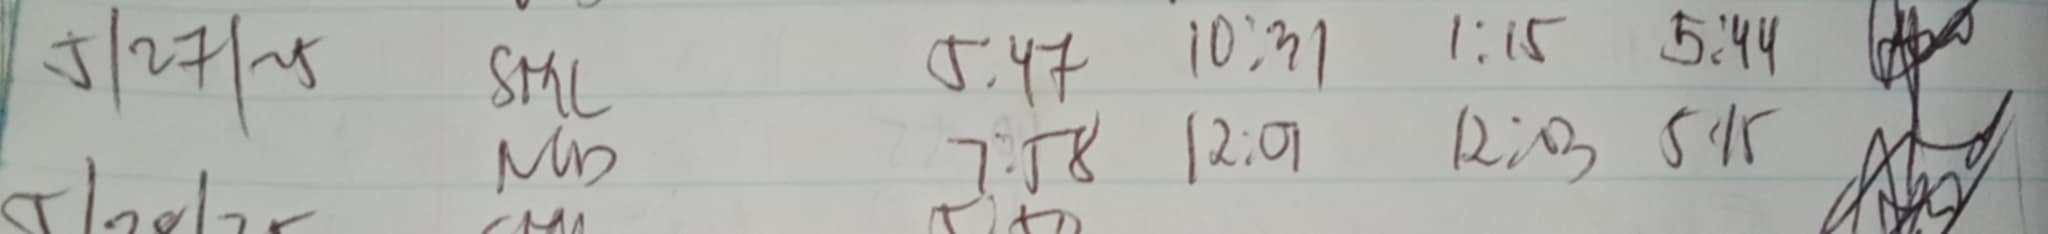 5/27/25 SML 5:47 10:31 1:15 5:44
NWD 7:58 12:01 12:03 5:15